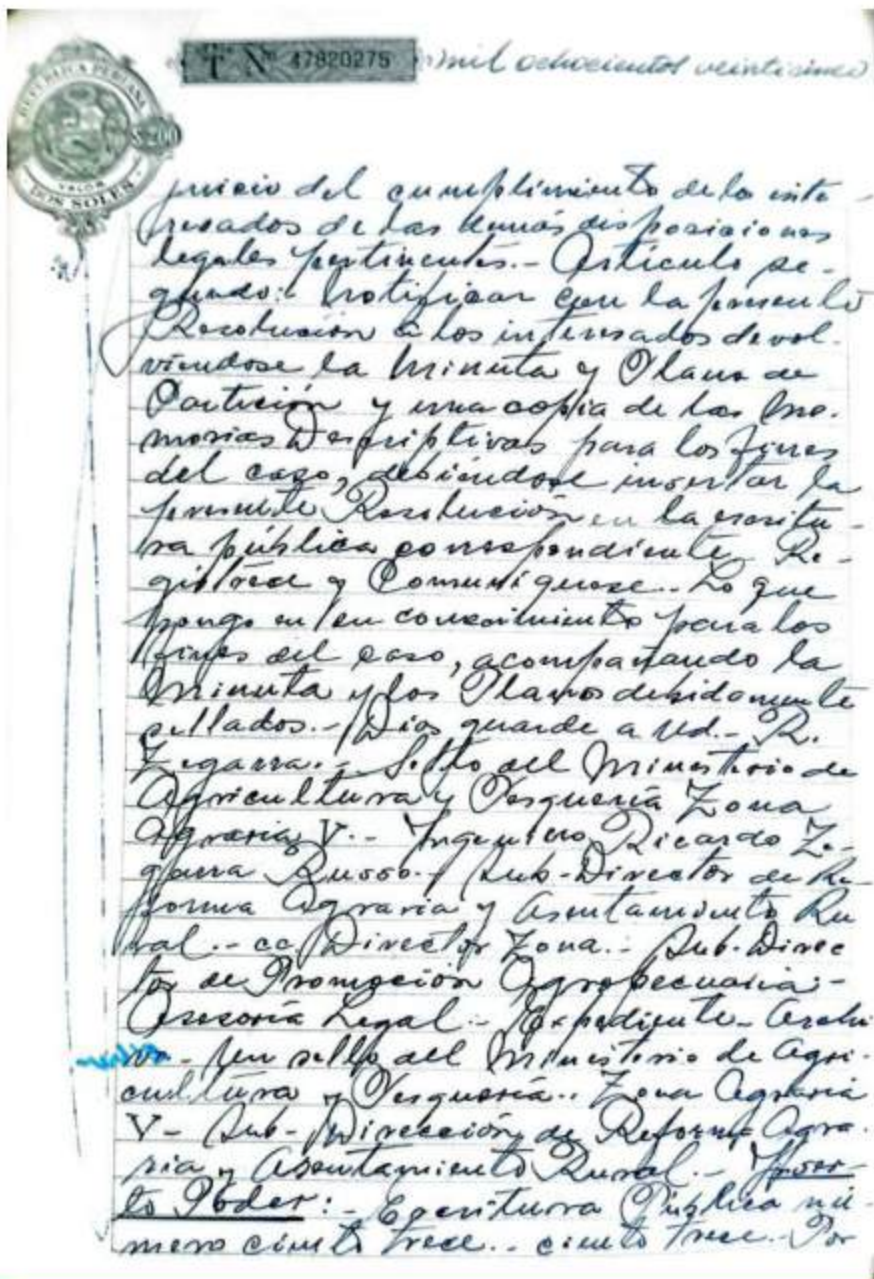 T Nº 47820275 mil ochocientos veinticinco
REPUBLICA PERUANA
S/. 2.00
VALOR
DOS SOLES
juicio del cumplimiento de los inte-
resados de las demás disposiciones
legales pertinentes.- Artículo se-
gundo:- Notificar con la presente
Resolución a los interesados devol-
viéndose la Minuta y Plano de
Partición y una copia de las Me-
morias Descriptivas para los fines
del caso, debiéndose insertar la
presente Resolución en la escritu-
ra pública correspondiente. Re-
gístrese y Comuníquese.- Lo que
pongo en su conocimiento para los
fines del caso, acompañando la
Minuta y los Planos debidamente
sellados.- Dios guarde a Ud.- R.
Zegarra.- Sello del Ministerio de
Agricultura y Pesquería Zona
Agraria V.- Ingeniero Ricardo Ze-
garra Russo.- Sub-Director de Re-
forma Agraria y Asentamiento Ru-
ral.- cc Director Zona.- Sub-Direc
tor de Promoción Agropecuaria-
Asesoría Legal.- Expediente- Archi
vo- Un sello del Ministerio de Agri-
cultura y Pesquería.. Zona Agraria
V- Sub-Dirección de Reforma Agra-
ria y Asentamiento Rural.- Inser-
to Poder:- Escritura Pública nú-
mero ciento trece.- ciento trece.- Por